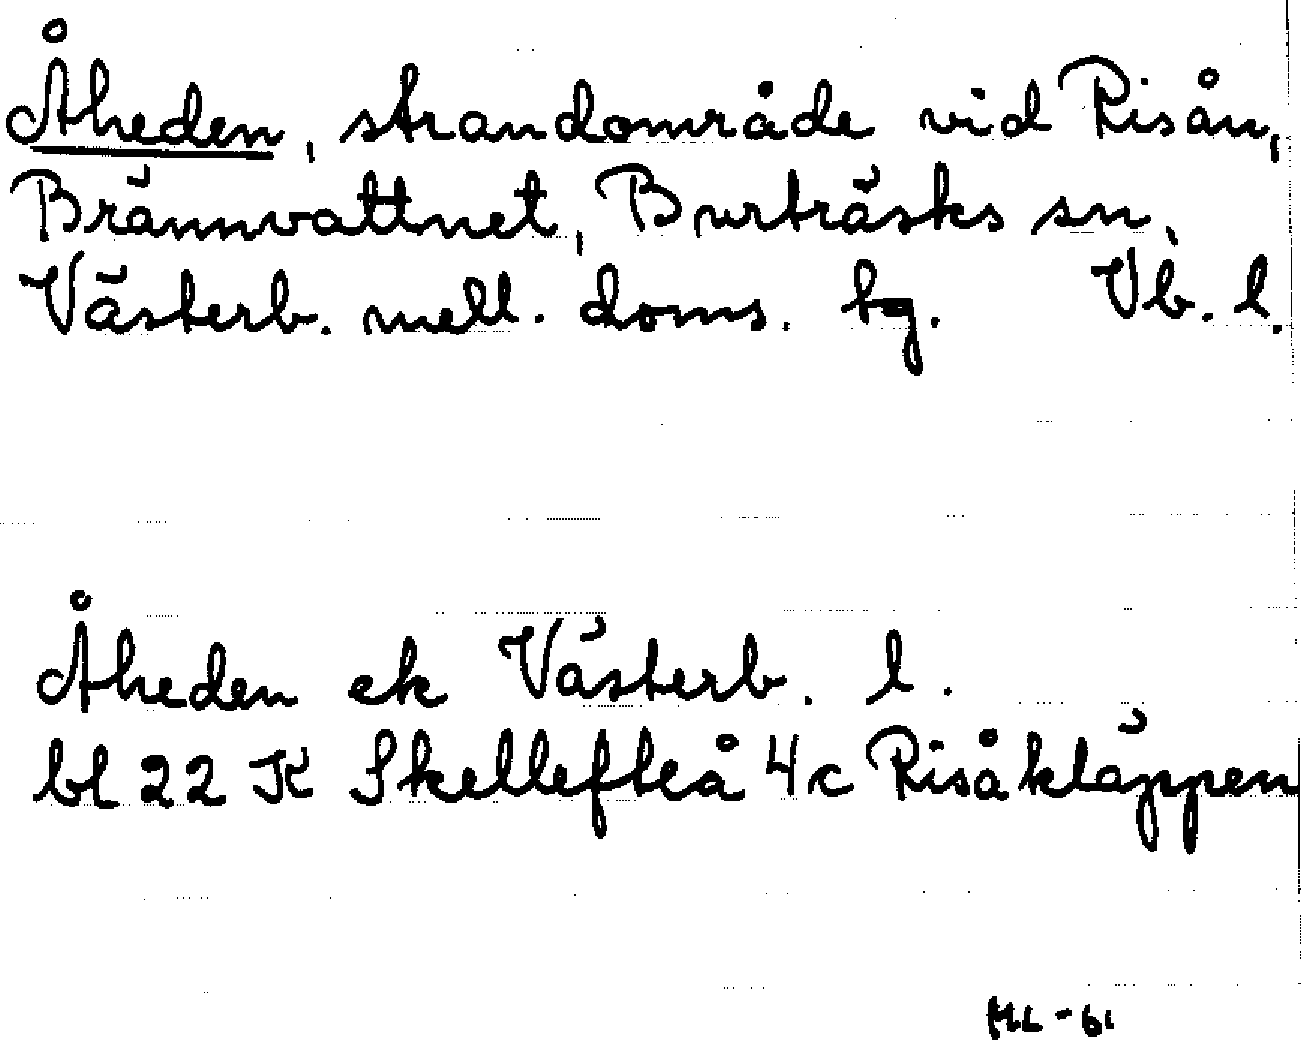 Åheden, strandområde vid Risån,
Brännvattnet, Burträsks sn,
Västerb. mell. doms. tg. Vb. l.
Åheden ek Västerb. l.
bl 22 K Skellefteå 4c Risåkläppen
ML-61